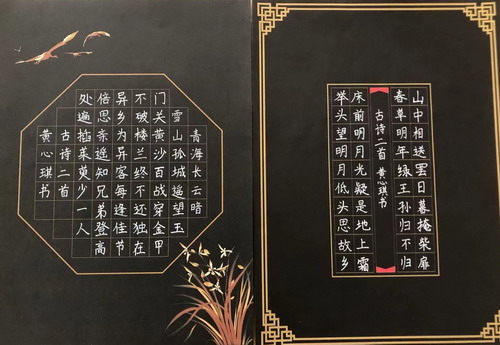 青海长云暗
雪山孤城遥望玉
门关黄沙百战穿金甲
不破楼兰终不还独在
异乡为异客每逢佳节
倍思亲遥知兄弟登高
处遍插茱萸少一人
古诗二首
黄心琪书
山中相送罢日暮掩柴扉
春草明年绿王孙归不归
古诗二首 黄心琪书
床前明月光疑是地上霜
举头望明月低头思故乡